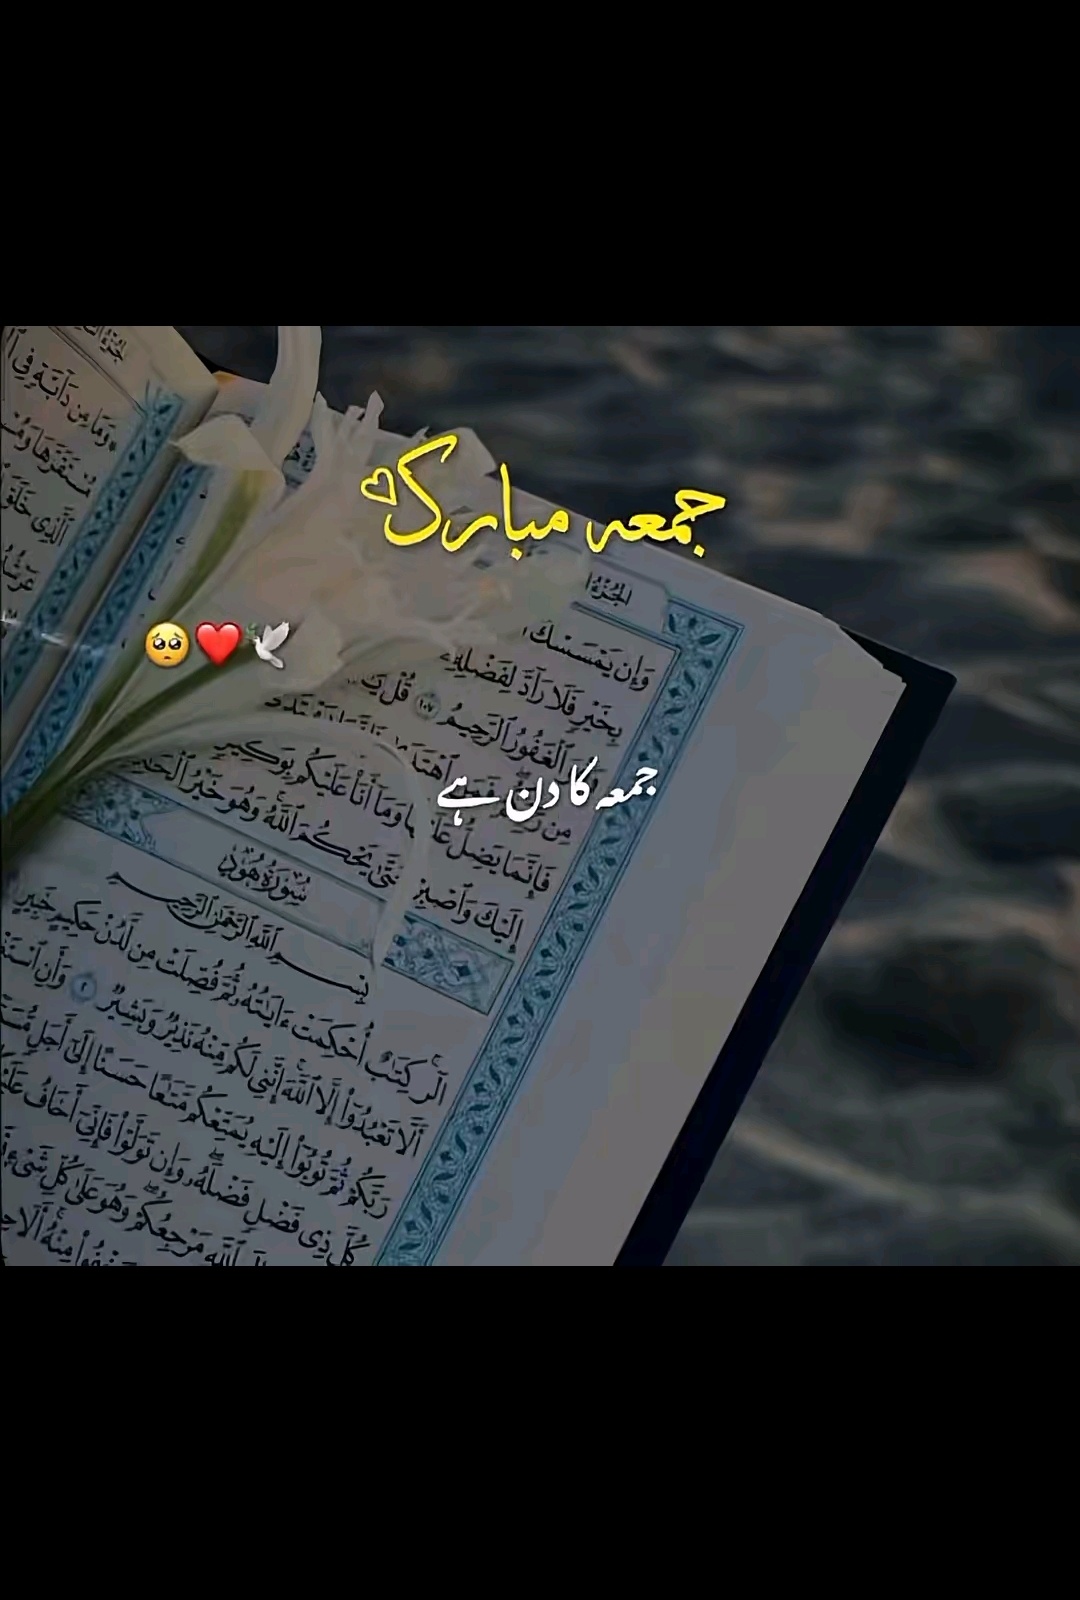 جمعہ مبارک
🥺❤️🕊️
جمعہ کا دن ہے
وَمَا مِن دَآبَّةٍ فِي
مُسْتَقَرَّهَا
ٱلَّذِي خَلَقَ
الجُزْءُ
وَإِن يَمْسَسْكَ
بِخَيْرٍ فَلَا رَآدَّ لِفَضْلِهِۦ
ٱلْغَفُورُ ٱلرَّحِيمُ ١٠٧ قُلْ
مِن
فَإِنَّمَا يَضِلُّ وَمَآ أَنَا۠ عَلَيْكُم بِوَكِيلٍ
إِلَيْكَ وَٱصْبِرْ يَحْكُمَ ٱللَّهُ وَهُوَ خَيْرُ
سُورَةُ هُودٍ
بِسْمِ ٱللَّهِ ٱلرَّحْمَٰنِ ٱلرَّحِيمِ
الٓر كِتَٰبٌ أُحْكِمَتْ ءَايَٰتُهُۥ ثُمَّ فُصِّلَتْ مِن لَّدُنْ حَكِيمٍ خَبِيرٍ
أَلَّا تَعْبُدُوٓا۟ إِلَّا ٱللَّهَ إِنَّنِى لَكُم مِّنْهُ نَذِيرٌ وَبَشِيرٌ ٢ وَأَنِ
رَبَّكُمْ ثُمَّ تُوبُوٓا۟ إِلَيْهِ يُمَتِّعْكُم مَّتَٰعًا حَسَنًا إِلَىٰٓ أَجَلٍ
كُلَّ ذِى فَضْلٍ فَضْلَهُۥ وَإِن تَوَلَّوْا۟ فَإِنِّىٓ أَخَافُ
ٱللَّهِ مَرْجِعُكُمْ وَهُوَ عَلَىٰ كُلِّ شَىْءٍ
مِنْهُ أَلَا